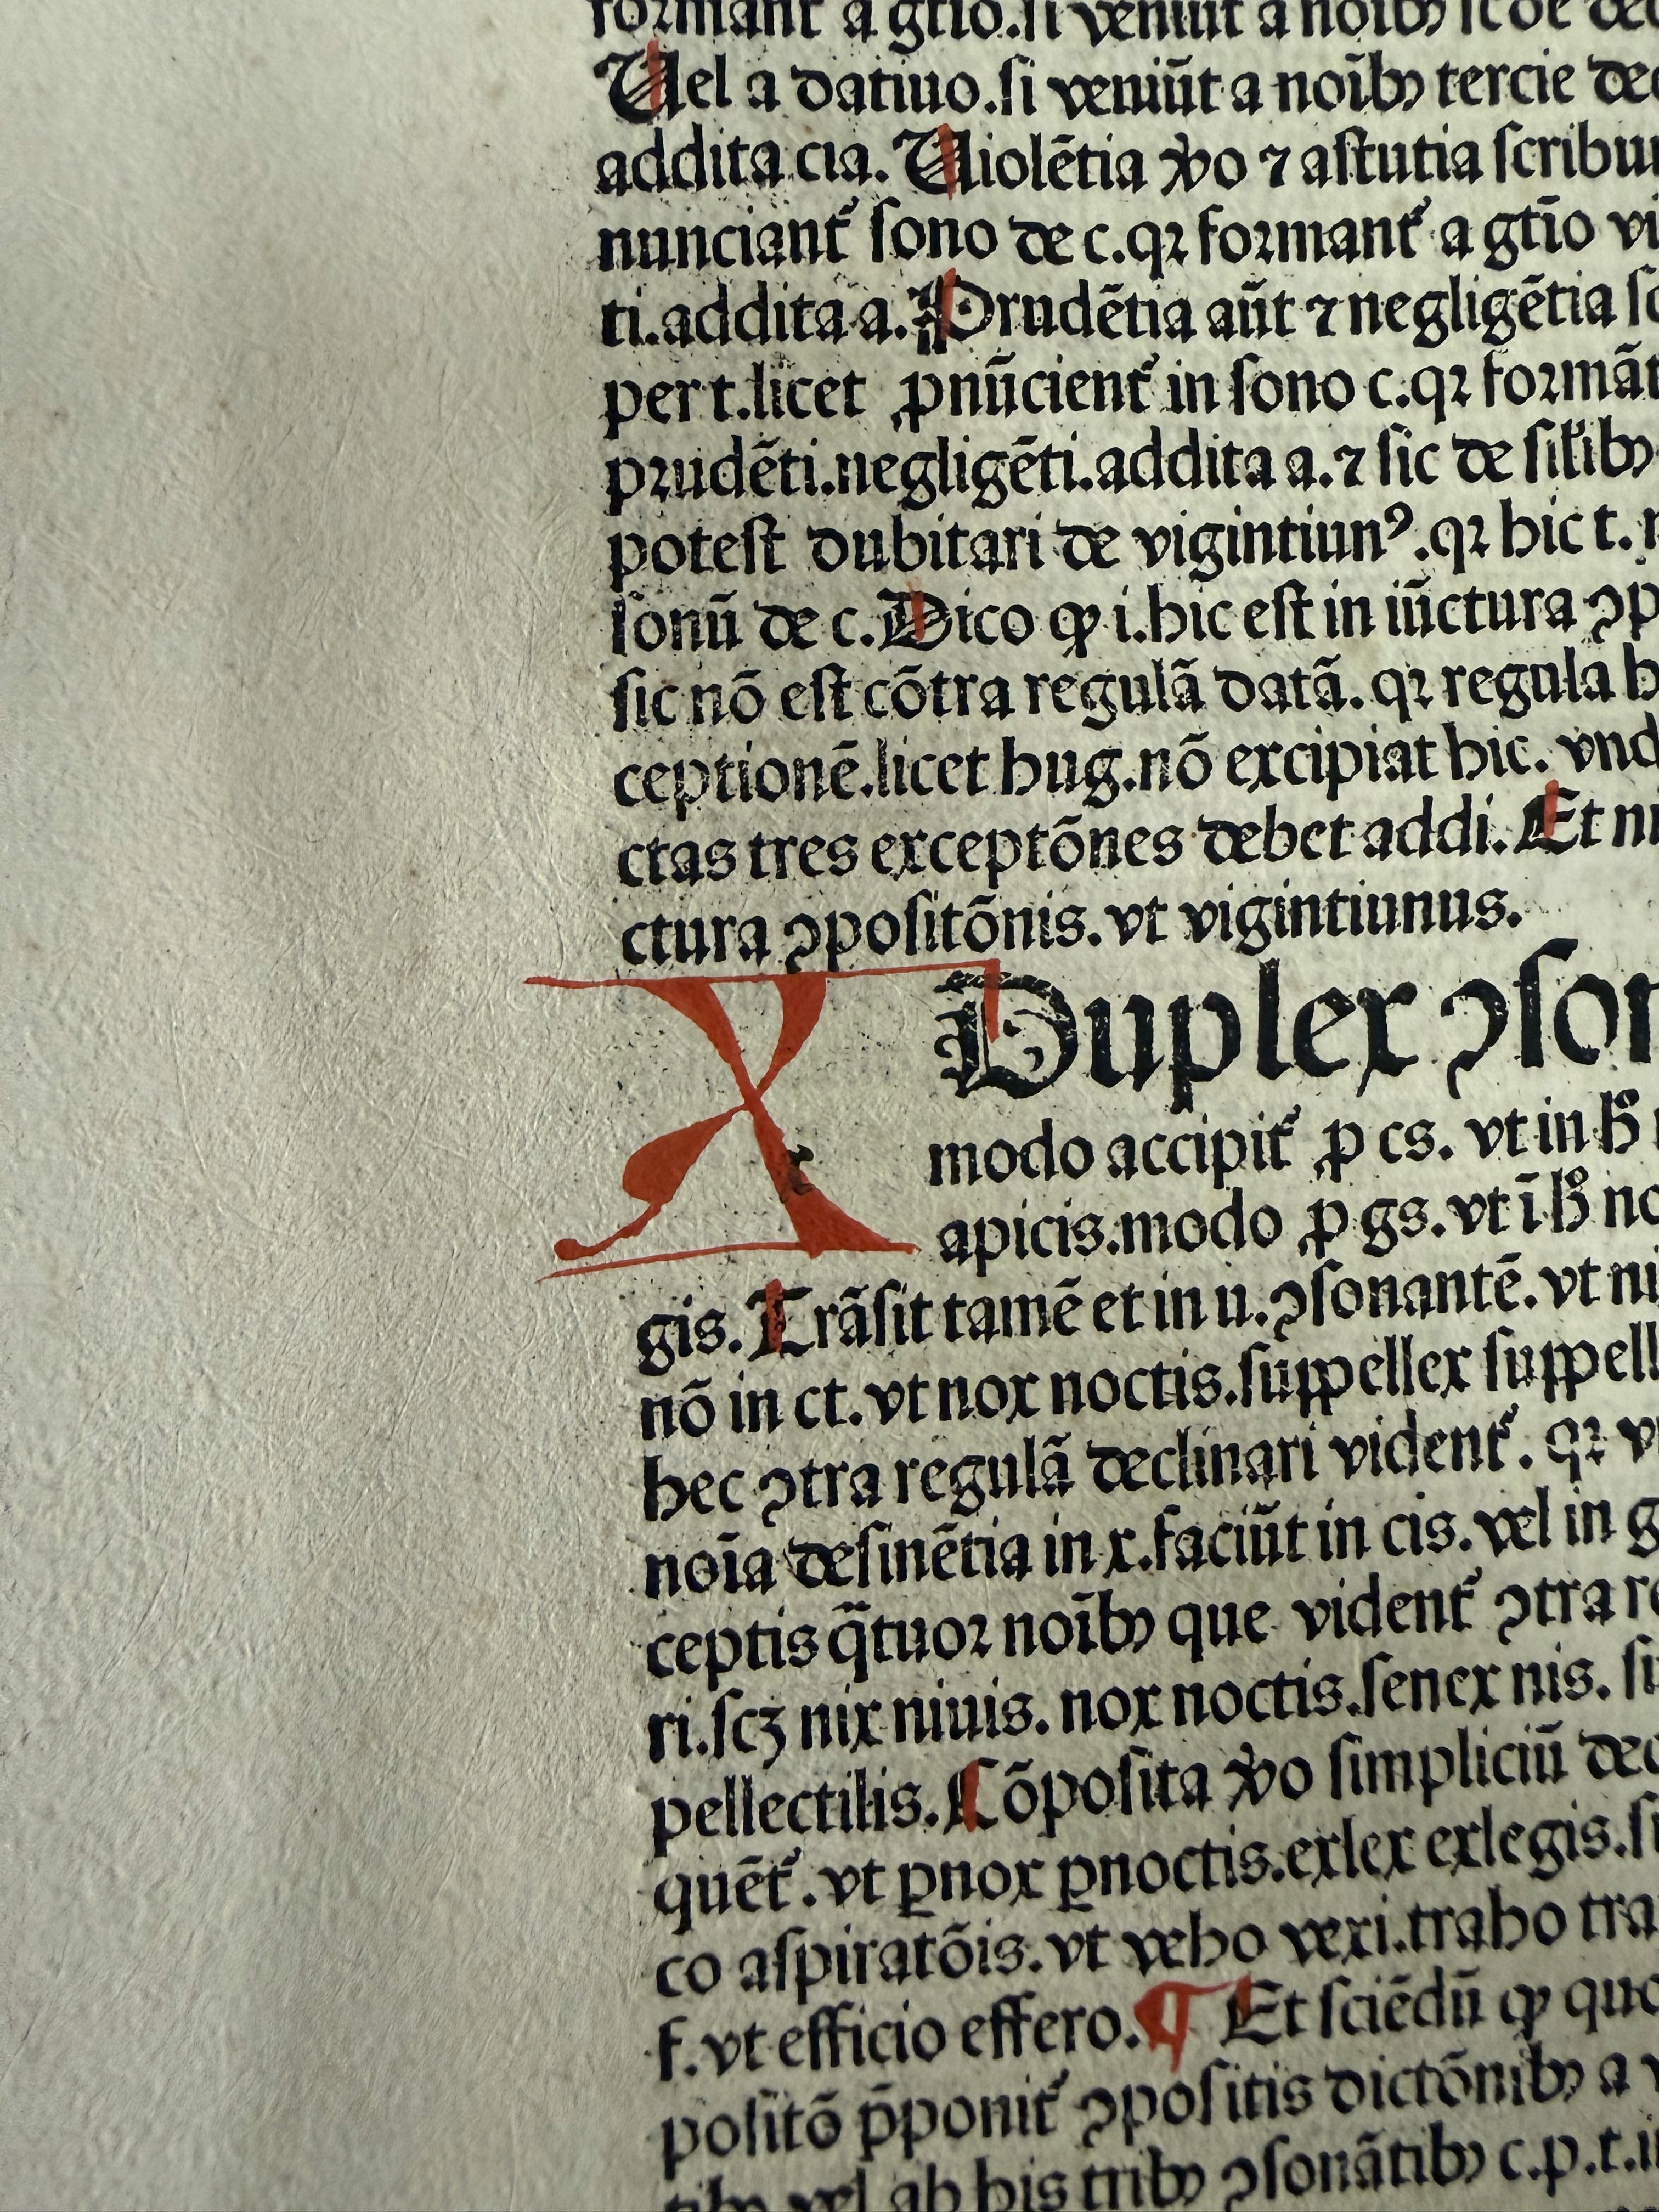 formant᷑ a gt̄io.ſi veniūt a noībꝫ
Uel a datiuo.ſi veniūt a noībꝫ tercie dec
addita cia. Uiolētia ꝟo ⁊ aſtutia ſcribu
nunciant᷑ ſono de c.qꝛ foꝛmant᷑ a gt̄io vi
ti.addita a. Prudētia aūt ⁊ negligētia ſc
per t.licet ꝓnūcient᷑ in ſono c.qꝛ foꝛmāt
pꝛudēti.negligēti.addita a.⁊ ſic de ſil̄ibꝫ
poteſt dubitari de vigintiunꝰ.qꝛ hic t.
ſonū de c.Dico ꝙ i.hic eſt in iūctura ꝯp
ſic nō eſt cōtra regulā datā. qꝛ regula h
ceptionē.licet hug.nō excipiat hic. vnd
ctas tres exceptōnes debet addi. Et ni
ctura ꝯpoſitōnis.vt vigintiunus.
X Duplex ꝯſon
modo accipit᷑ ꝓ cs. vt in h̊
apicis.modo ꝓ gs.vt ī h̊ no
gis. Trāſit tamē et in u.ꝯſonantē.vt ni
nō in ct.vt nox noctis.ſuppellex ſuppell
hec ꝯtra regulā declinari vident᷑. qꝛ v
noīa deſinētia in x.faciūt in cis.vel in g
ceptis q̄tuoꝛ noībꝫ que vident᷑ ꝯtra re
ri.ſcꝫ nix niuis. nox noctis.ſenex nis. ſu
pellectilis.Cōpoſita ꝟo ſimpliciū dec
quēt᷑.vt ꝑnox ꝑnoctis.exlex exlegis.ſi
co aſpiratōis.vt veho vexi.traho tra
f.vt efficio effero.¶ Et ſciēdū ꝙ quo
poſitō p̄ponit᷑ ꝯpoſitis dictōnibꝫ a v
tibꝫ vel ab his tribꝫ ꝯſonātibꝫ c.p.t.